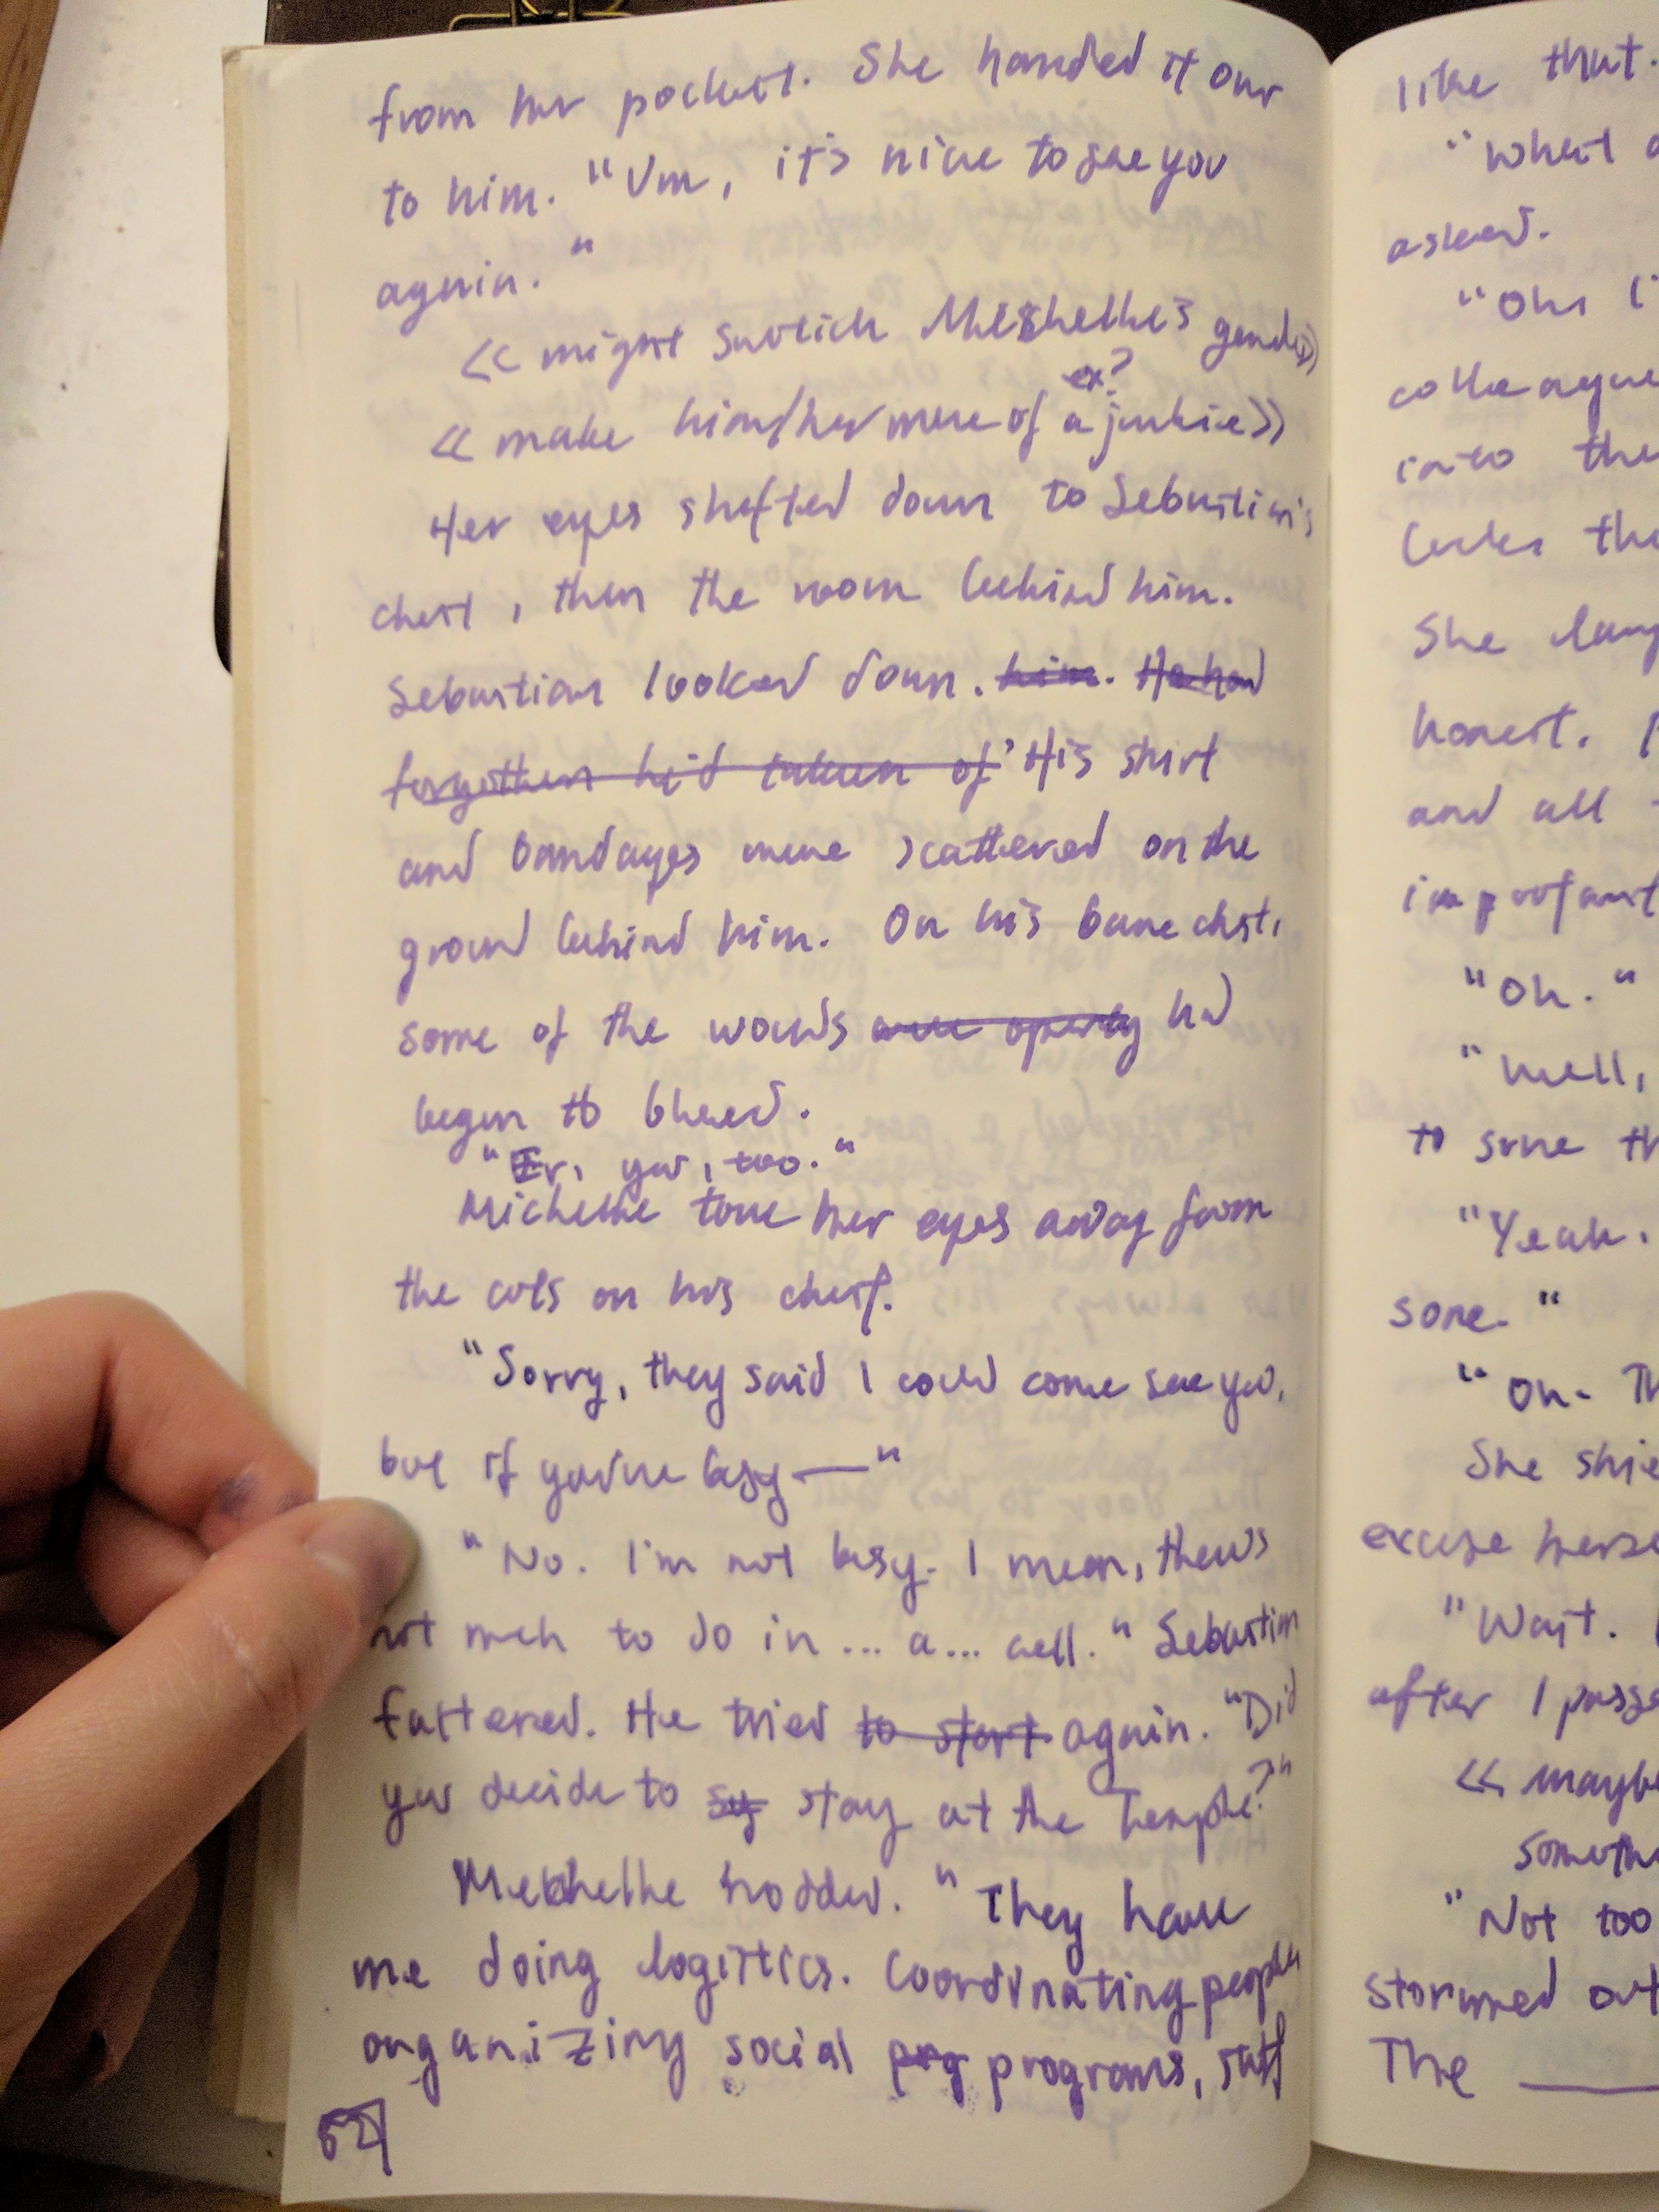 from her pocket. She handed it over
to him. "Um, it's nice to see you
again."
<< might switch Meshelle's gender>>
ex?
<< make him/her more of a junkie>>
Her eyes shifted down to Sebastian's
chest, then the room behind him.
Sebastian looked down. him. He had
forgotten he'd taken of His shirt
and bandages were scattered on the
ground behind him. On his bare chest,
some of the wounds were opening had
begun to bleed.
"Er, you, too."
Michelle tore her eyes away from
the cuts on his chest.
"Sorry, they said I could come see you,
but if you're busy—"
"No. I'm not busy. I mean, there's
not much to do in ... a... cell." Sebastian
faltered. He tried to start again. "Did
you decide to sty stay at the Temple?"
Meshelle nodded. "They have
me doing logistics. Coordinating people,
organizing social prog programs, stuff
52
like that.
"What
asked.
"Oh,
colleague
into the
She
honest.
and all
important
"Oh."
"Well,
to
"Yeah.
some."
"Oh. Th
She
excuse herse
"Wait.
after I passe
<< maybe
somethi
"Not too
stormed out
The